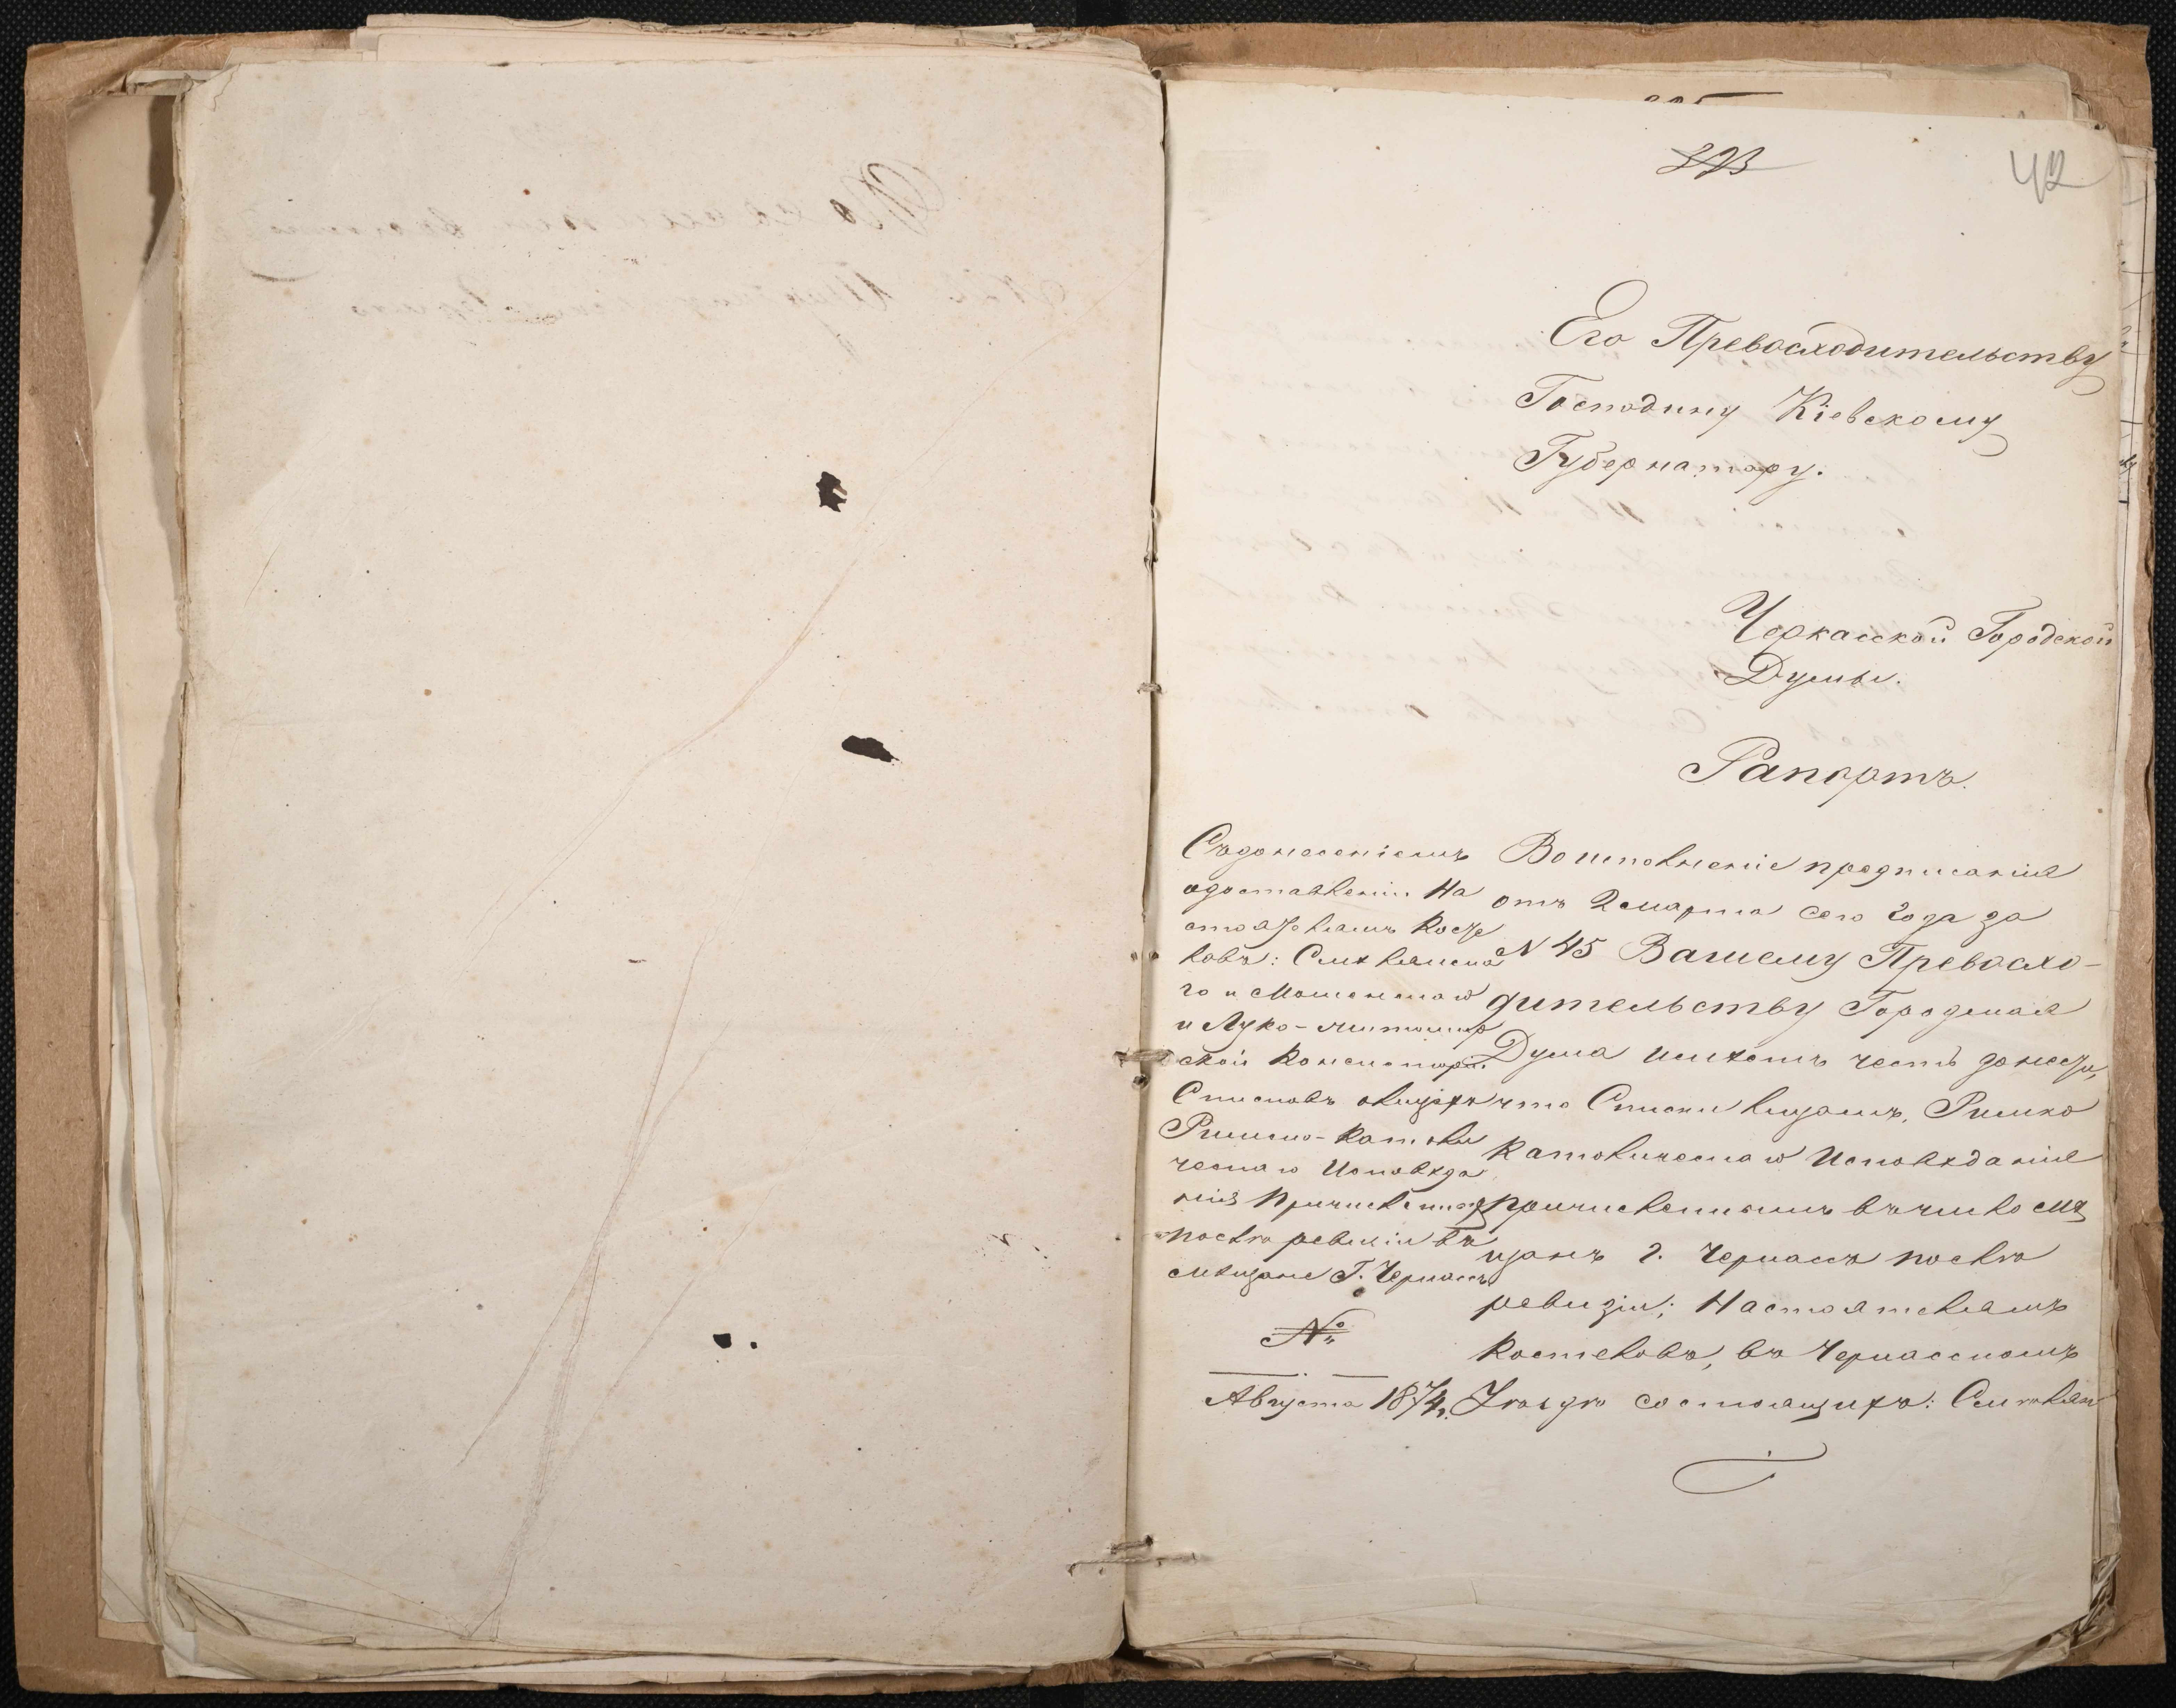 42
Его Превосходительству
Господину Кіевскому
Губернатору.
Черкасской Городской
Думы.
Рапортъ.
Съ донесеніемъ
о доставленіи На
стоятелямъ Косте
ловъ: Смѣлянска
го и Мошенскаго
и Луко-Житомир
ской Консисторіи
Списковъ о лицахъ
Римско-Католи
ческаго Исповѣда
нія причисленныхъ
послѣ ревизіи въ
мѣщане Г. Черкассъ
№
Августа 1874 г.
Во исполненіе предписанія
отъ 2 марта сего года за
N 45 Вашему Превосхо-
дительству Городская
Дума имѣетъ честь донести,
что Списки лицамъ, Римско
Католическаго Исповѣданія
причисленнымъ въ число мѣ
щанъ г. Черкассъ послѣ
ревизіи; Настоятелямъ
костеловъ, въ Черкасскомъ
Уѣздѣ состоящихъ: Смѣлян